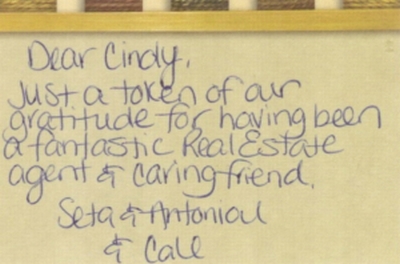 Dear Cindy,
Just a token of our
gratitude for having been
a fantastic Real Estate
agent & caring friend.
Seta & Antonial
& Call